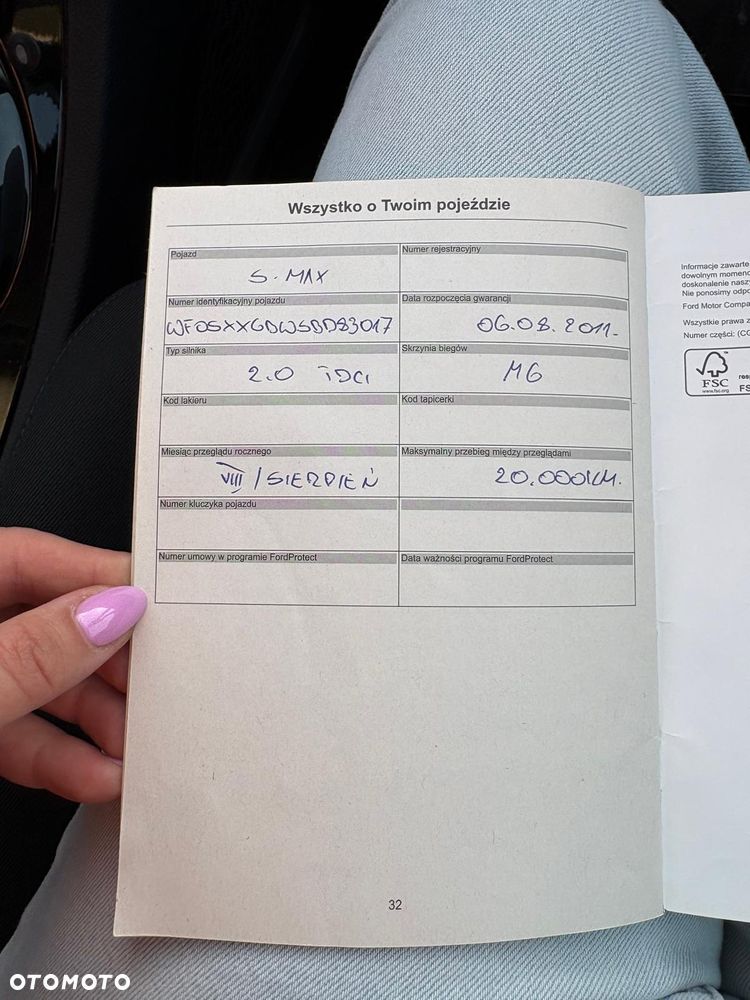 Wszystko o Twoim pojeździe
Pojazd
S-MAX
Numer rejestracyjny
Numer identyfikacyjny pojazdu
WF0SXXGBWSBD83017
Data rozpoczęcia gwarancji
06.08.2011-
Typ silnika
2.0 TDCI
Skrzynia biegów
M6
Kod lakieru
Kod tapicerki
Miesiąc przeglądu rocznego
VIII / SIERPIEŃ
Maksymalny przebieg między przeglądami
20.000KM.
Numer kluczyka pojazdu
Numer umowy w programie FordProtect
Data ważności programu FordProtect
32
Informacje zawarte
dowolnym momenc
doskonalenie nasz
Nie ponosimy odpo
Ford Motor Compa
Wszystkie prawa z
Numer części: (CG
FSC
www.fsc.org
resp
FS
OTOMOTO